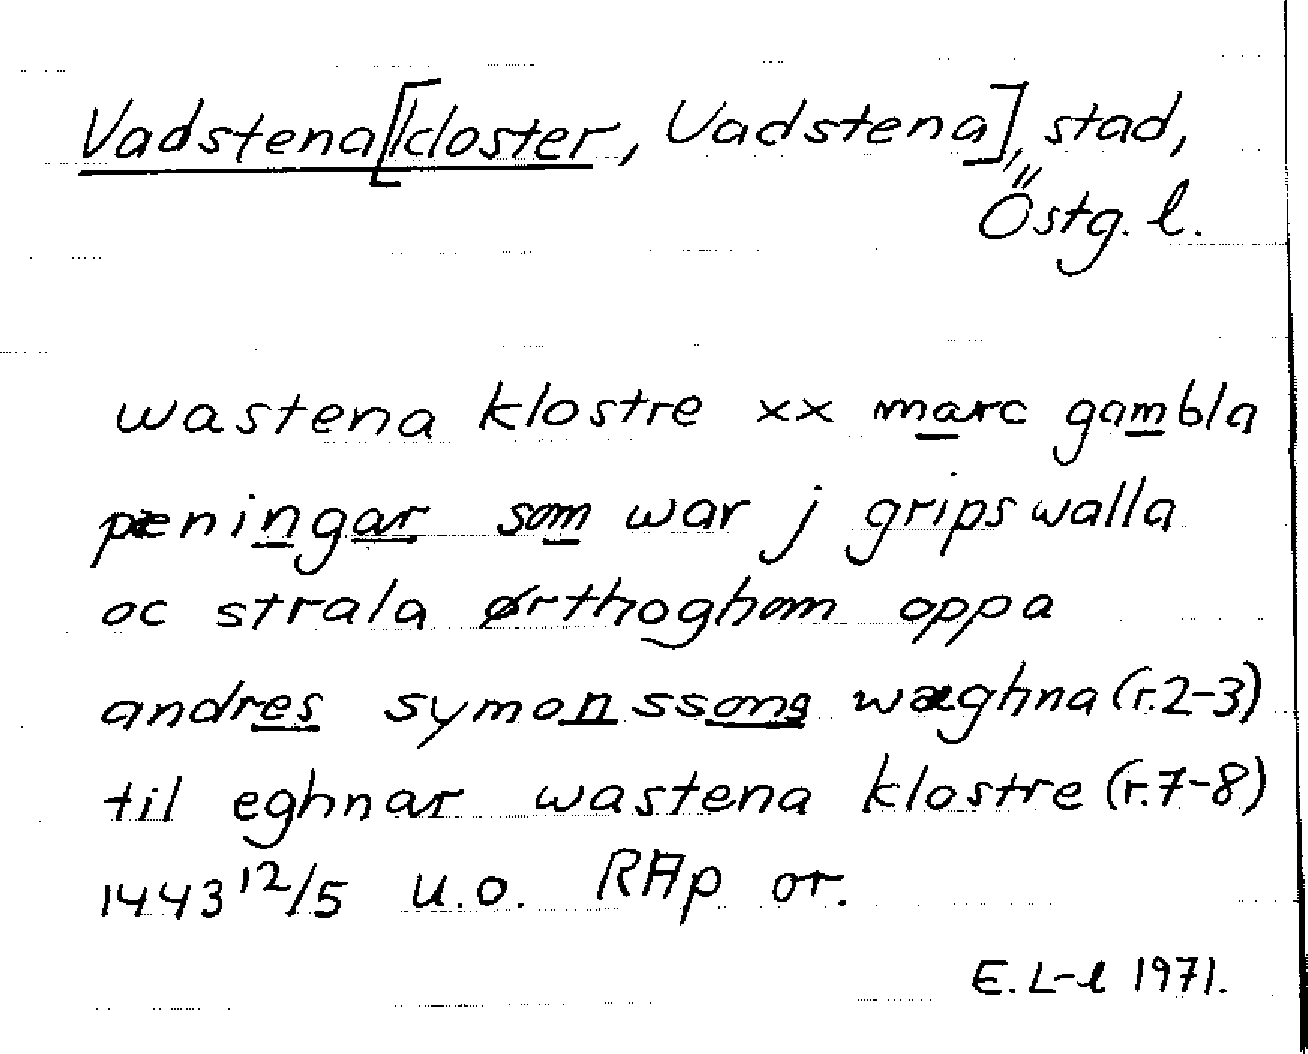 Vadstena[kloster, Vadstena], stad,
Östg. l.
wastena klostre xx marc gambla
pæningar som war j gripswalla
oc strala ørthoghom oppa
andres symonssons wæghna (r.2-3)
til eghnar wastena klostre (r.7-8)
1443 12/5 u.o. RAp or.
E. L-l 1971.